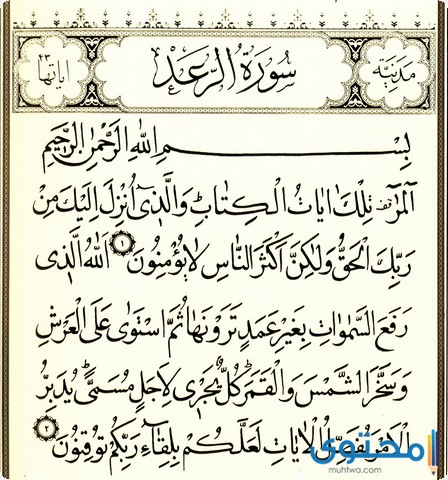 مدنية سورة الرعد اياتها ٤٣
بِسْمِ اللّٰهِ الرَّحْمٰنِ الرَّحِيمِ
الٓمٓرٰ تِلْكَ اٰيَاتُ الْكِتَابِ وَالَّذ۪ٓي اُنْزِلَ اِلَيْكَ مِنْ
رَبِّكَ الْحَقُّ وَلٰكِنَّ اَكْثَرَ النَّاسِ لَا يُؤْمِنُونَ ١ اَللّٰهُ الَّذ۪ي
رَفَعَ السَّمٰوَاتِ بِغَيْرِ عَمَدٍ تَرَوْنَهَا ثُمَّ اسْتَوٰى عَلَى الْعَرْشِ
وَسَخَّرَ الشَّمْسَ وَالْقَمَرَ كُلٌّ يَجْر۪ي لِاَجَلٍ مُسَمًّى يُدَبِّرُ
الْاَمْرَ يُفَصِّلُ الْاٰيَاتِ لَعَلَّكُمْ بِلِقَاۤءِ رَبِّكُمْ تُوقِنُونَ ٢
محتوى
muhtwa.com